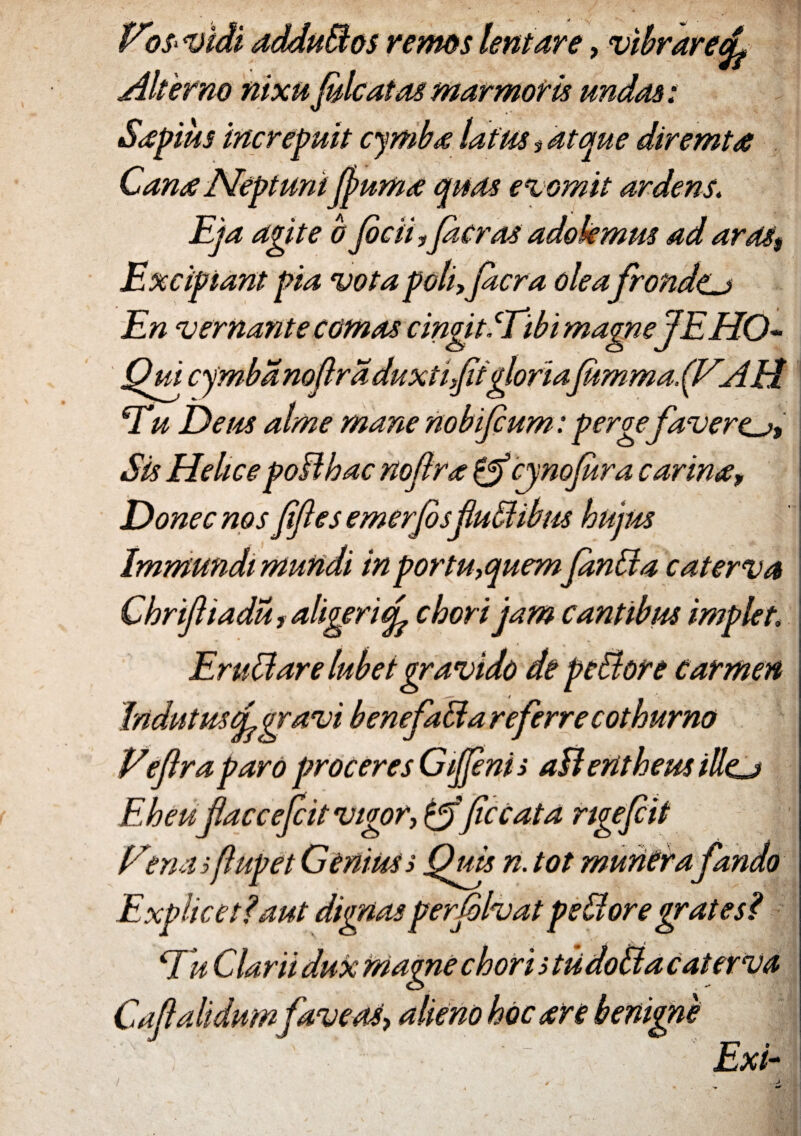 Vos vidi adductos remos lentare, vibrareq;
Alterno nixu ſulcatas marmoris undas:
Sæpius increpuit cymbæ latus, atque diremtæ
Canæ Neptuni ſpumæ quas evomit ardens.
Eja agite ò ſocii, ſacras adolemus ad aras,
Excipiant pia vota poli, ſacra olea fronde
En vernante comas cingit. Tibi magne JEHO-
Qui cymbâ noſtrâ duxti, ſit gloria ſumma. (VAH
Tu Deus alme mane nobiſcum: perge favere,
Sis Helice poſthac noſtræ & cynoſura carinæ,
Donec nos ſiſtes emerſos fluctibus hujus
Immundi mundi in portu, quem ſancta caterva
Chriſtiadû, aligeriq; chori jam cantibus implet.
Eructare lubet gravido de pectore carmen
Indutusq; gravi benefacta referre cothurno
Veſtra paro proceres Giſſenis aſt entheus ille
Eheu flacceſcit vigor, & ſiccata rigeſcit
Vena; ſtupet Genius; Quis n. tot munera fando
Explicet? aut dignas perſolvat pectore grates?
Tu Clarii dux magne chori; tu docta caterva
Caſtalidum faveas, alieno hoc ære benigne
Exi-